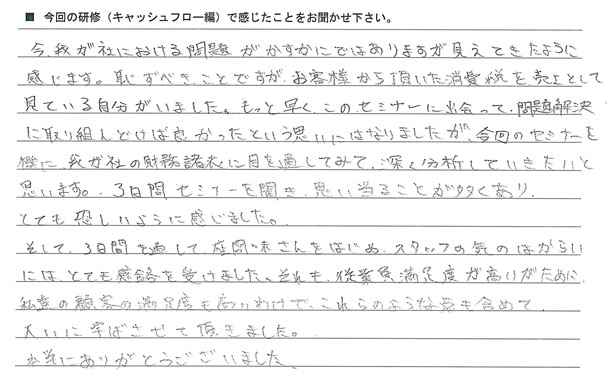 ■ 今回の研修（キャッシュフロー編）で感じたことをお聞かせ下さい。
今、我が社における問題がかすかにではありますが見えてきたように
感じます。恥ずべきことですが、お客様から頂いた消費税を売上として
見ている自分がいました。もっと早く、このセミナーに出会って、問題解決
に取り組んどけば良かったという思いにはなりましたが、今回のセミナーを
機に、我が社の財務諸表に目を通してみて、深く分析していきたいと
思います。3日間セミナーを聞き、思い当ることが多々あり、
とても恐しいように感じました。
そして、3日間を通して、座間味さんをはじめ、スタッフの気のはからい
には、とても感銘を受けました。それも、従業員満足度が高いがために、
私達の顧客の満足度も高いわけで、これらのような意も含めて、
大いに学ばさせて頂きました。
本当にありがとうございました。